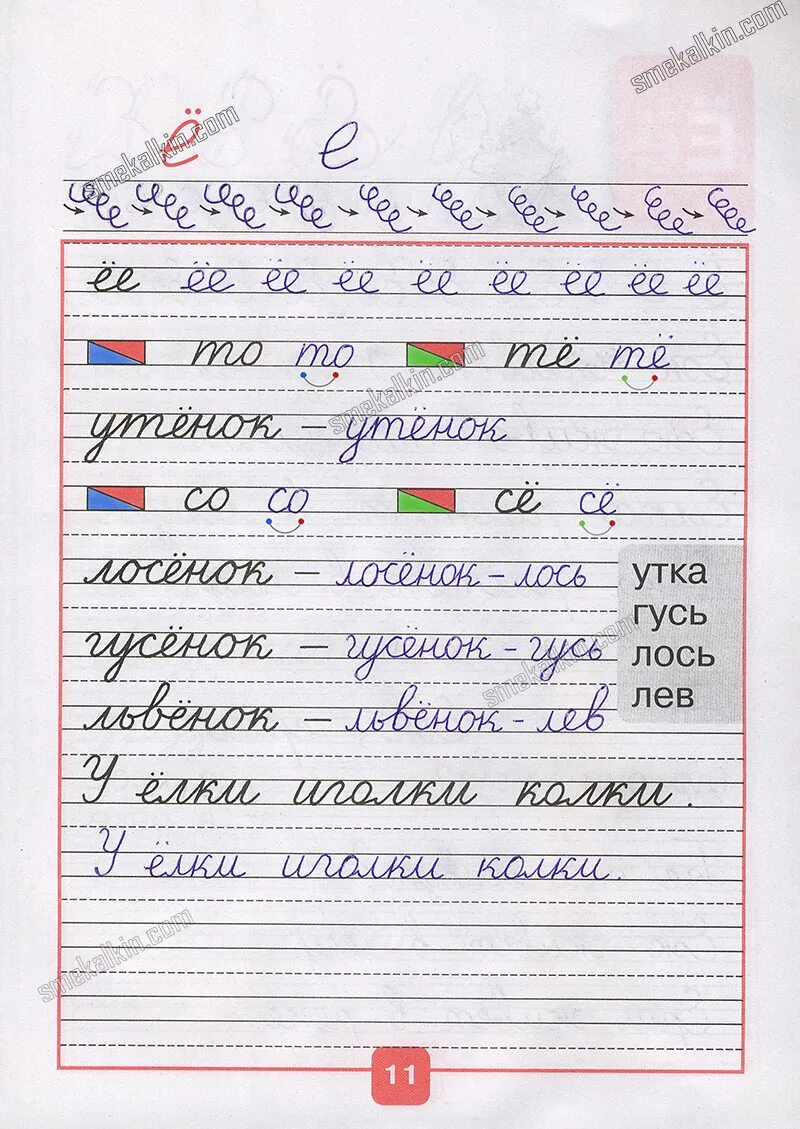 smekalkin.com
ё е
smekalkin.com
ёе ёе ёе ёе ёе ёе ёе ёе ёе
то то тё тё
smekalkin.com
утёнок – утёнок
со со сё сё
лосёнок – лосёнок - лось
утка
гусь
лось
лев
гусёнок – гусёнок - гусь
smekalkin.com
львёнок – львёнок - лев
У ёлки иголки колки.
У ёлки иголки колки.
smekalkin.com
11